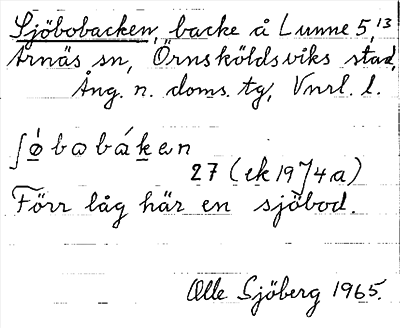 Sjöbobacken, backe å Lunne 5,13
Arnäs sn, Örnsköldsviks stad,
Ång. n. doms. tg, Vnrl. l.
ʃǿbobáken
27 (ek 1974a)
Förr låg här en sjöbod.
Olle Sjöberg 1965.